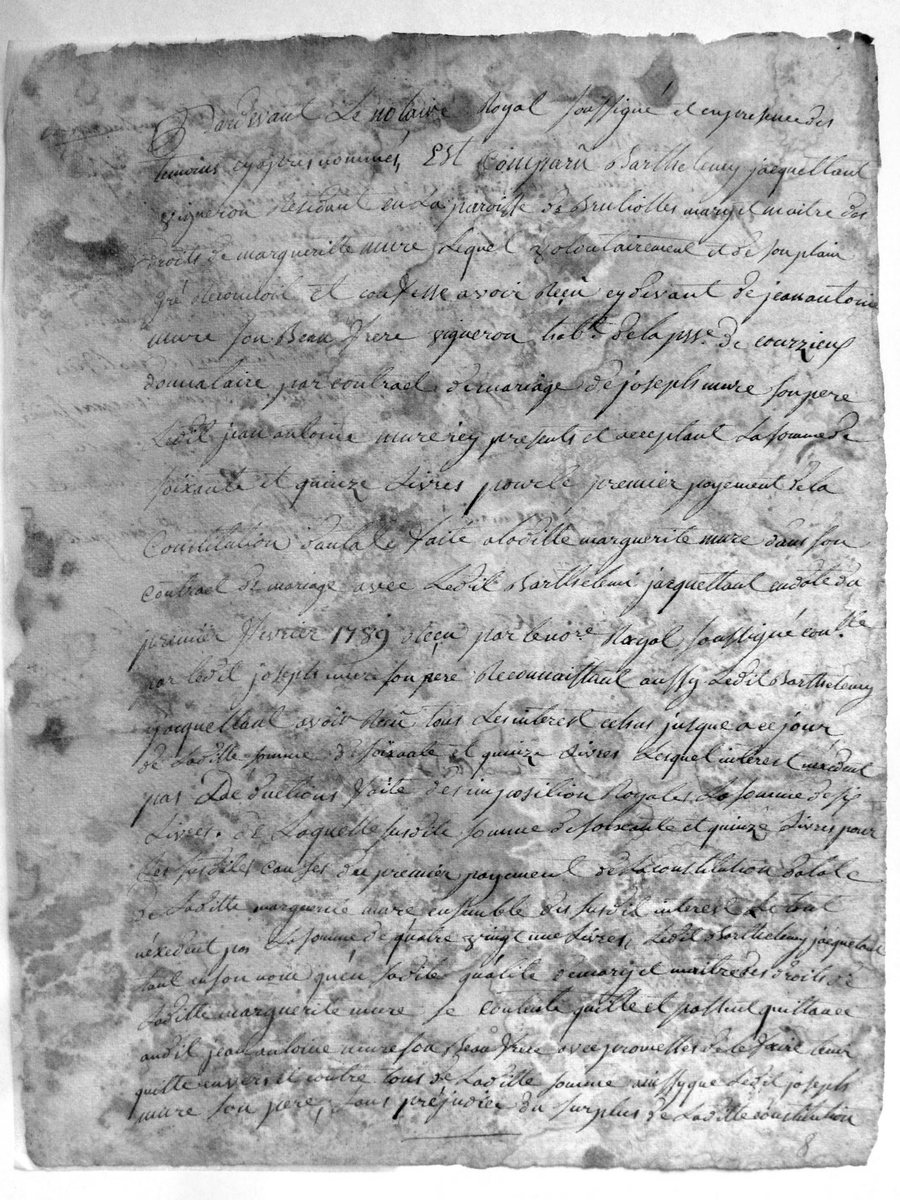 Pardevant Le notaire Royal soussigné et en presence des
temoins cy apres nommes, Est Comparu Barthelemy jacquettant
vigneron Residant en La paroisse de Brullioles mary et maitre des
droits de margueritte mure Lequel volontairement et de son plain
gré Reconnoit et confesse avoir Reçu cy devant de jean antoine
mure son Beau frere vigneron habt. de la psse. de courzieux
donnataire par contract de mariage de joseph mure son pere
Ledit jean antoine mure icy present et acceptant La somme de
soixante et quinze Livres pour le premier payement de la
Constitution dautale faite a Laditte marguerite mure dans son
contract de mariage avec Ledit Barthelemi jacquettant en datte du
premier fevrier 1789 Reçu par le nore Royal soussigné
par Ledit joseph mure son pere Reconnaissant aussy Ledit Barthelemy
jacquettant avoir Reçu tous Les interest echus jusque a ce jour
de Laditte somme de soixante et quinze Livres Lesquel interest n'exedent
pas Deductions faite des imposition Royales La somme de six
Livres. de Laquelle susdite somme de soixante et quinze Livres pour
Les susdites causes du premier payement de La constitution dotale
de Laditte marguerite mure ensemble des susdit interest Le tout
n'exedent pas La somme de quatre vingt une Livres, Ledit Barthelemy jacquettant
tant en son nom qu'en sadite qualité de mary et maitre des droits de
Laditte marguerite mure se contente quitte et passent quittance
audit jean antoine mure son Beau frere avec promesses de le faire tenir
quitte envers et contre tous de Laditte somme aussy que Ledit joseph
mure son pere, sans prejudice du surplus de Laditte constitution
8